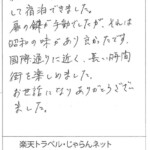 して宿泊できました。
扉の鍵が手動でしたが、それは
昭和の味があり良かったです。
国際通りに近く、長い時間
街を楽しめました。
お世話になりありがとうござい
ました。
楽天トラベル・じゃらんネット